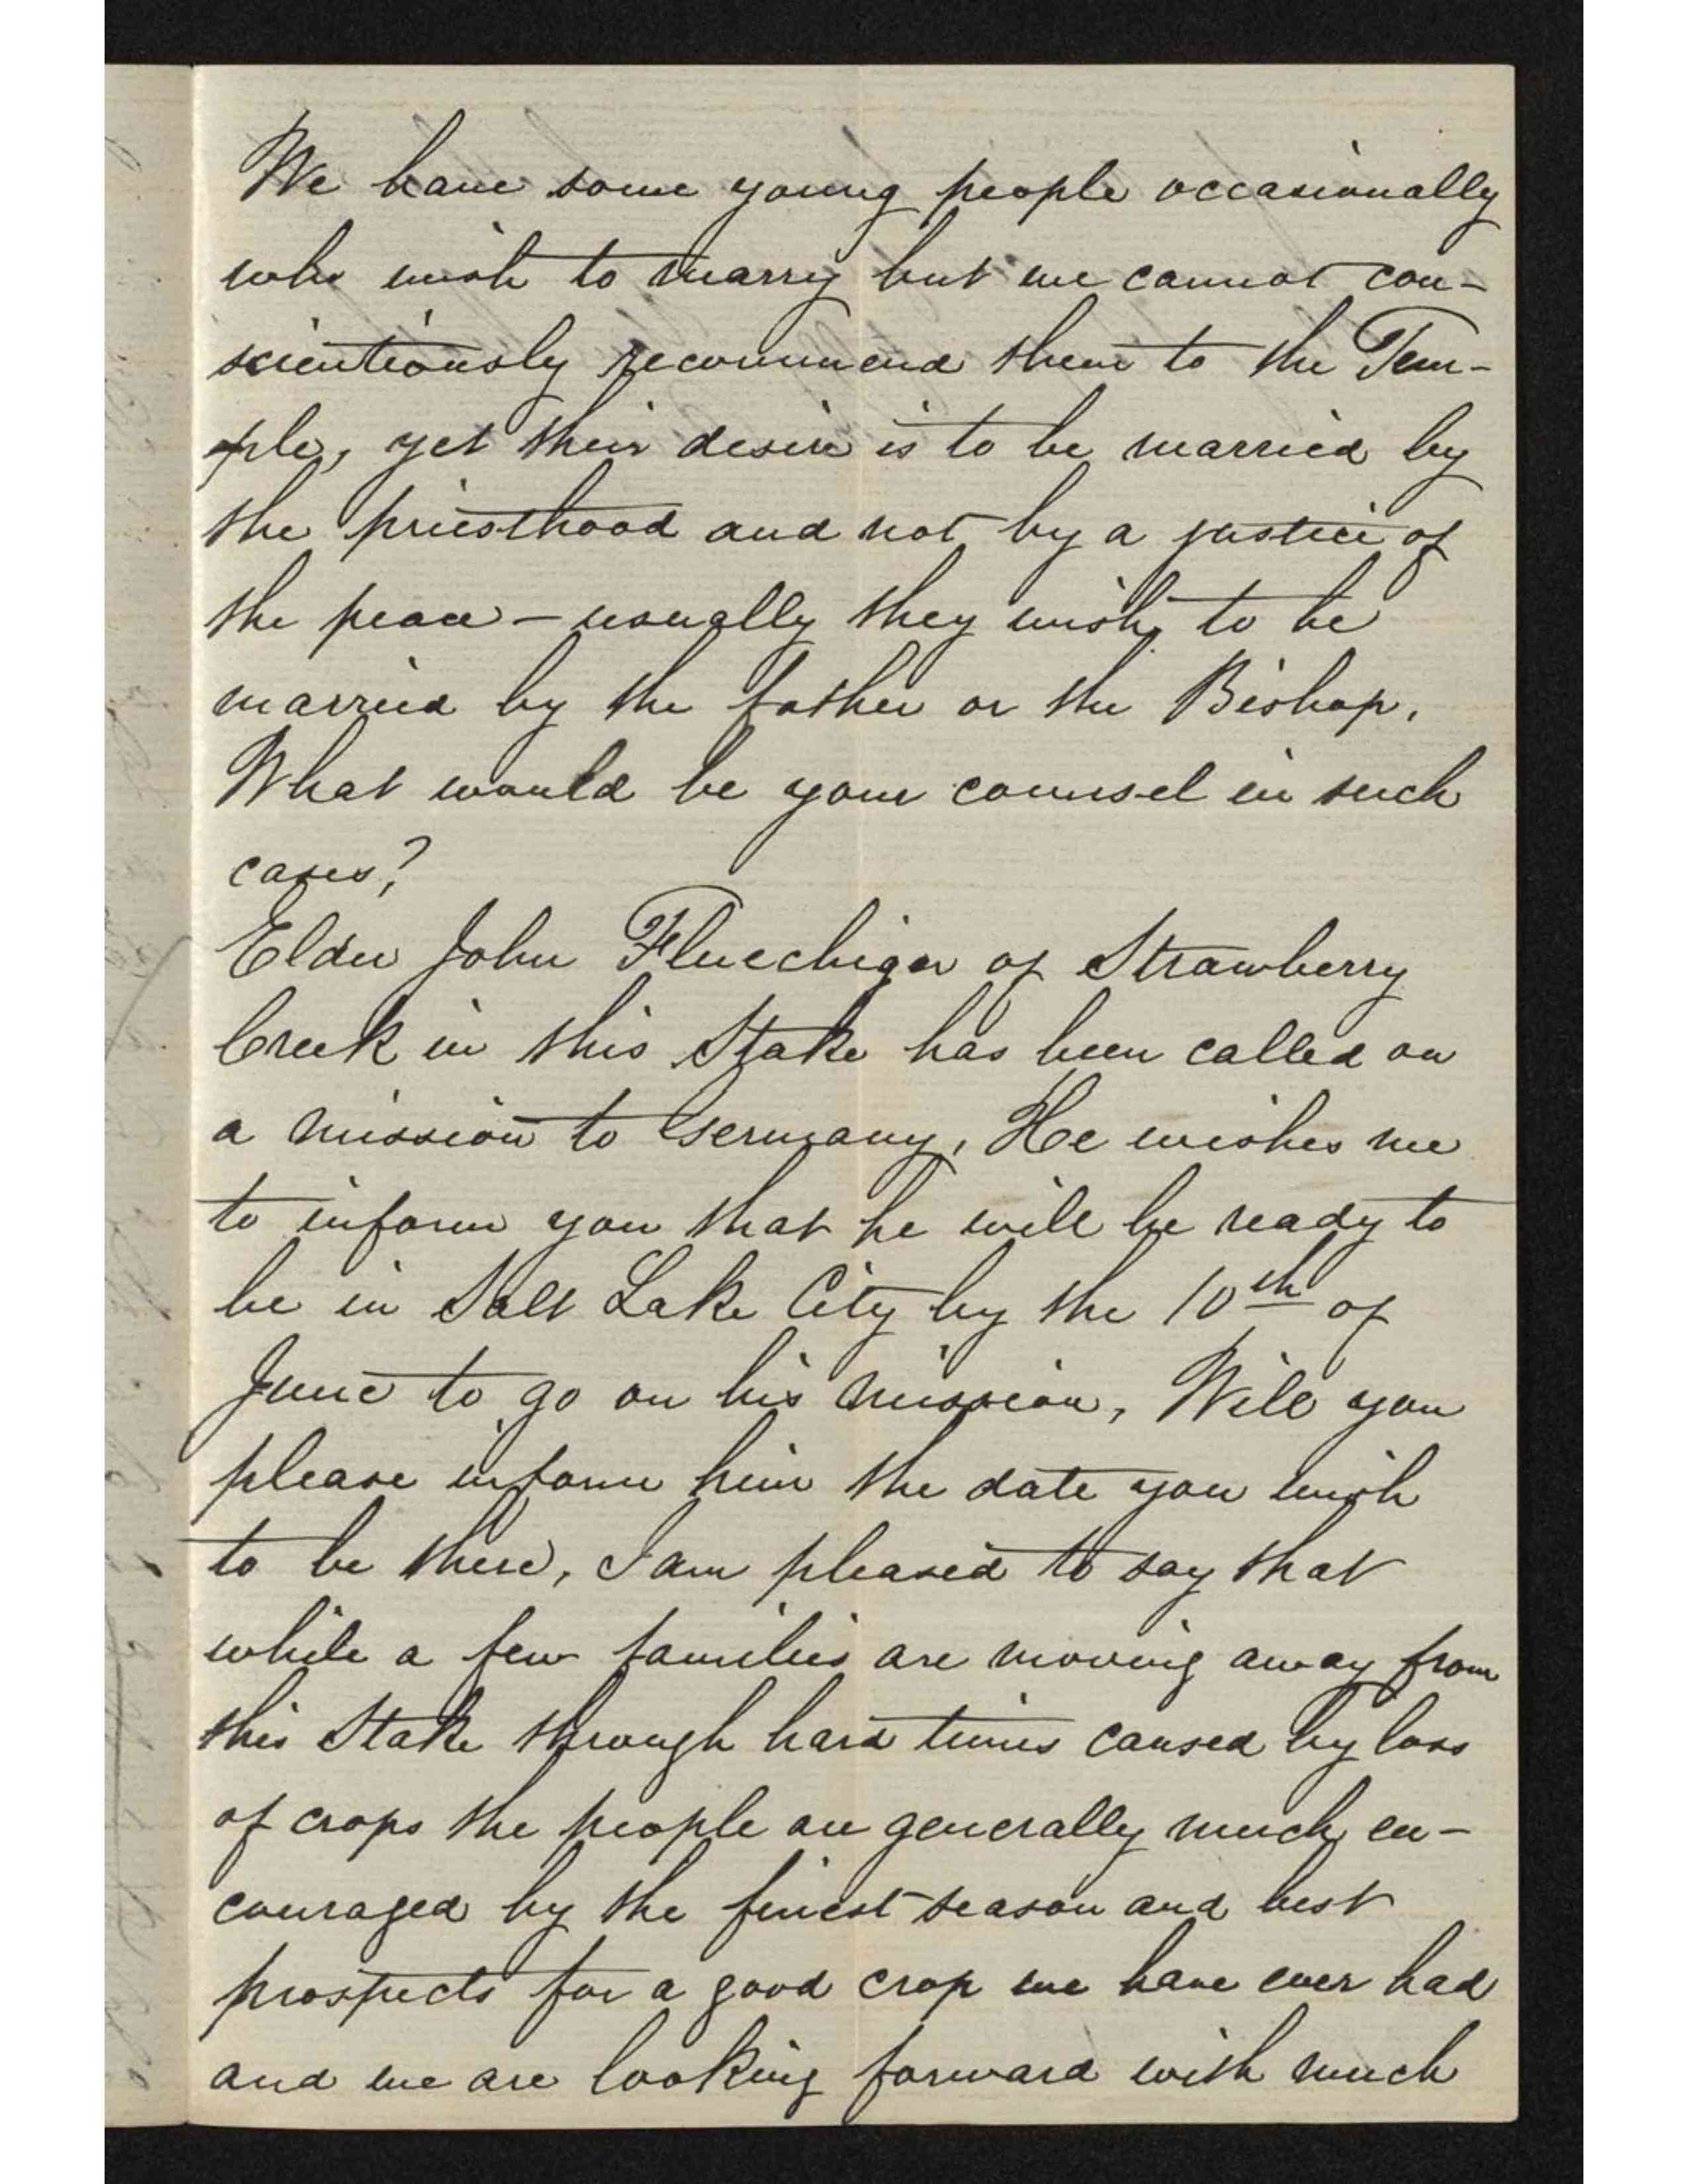 We have some young people occasionally
who wish to marry but we cannot con-
scientiously recommend them to the Tem-
ple, yet their desire is to be married by
the priesthood and not by a justice of
the peace - usually they wish to be
married by the father or the Bishop.
What would be your counsel in such
cases?
Elder John Fluechiger of Strawberry
Creek in this Stake has been called on
a mission to Germany, He wishes me
to inform you that he will be ready to
be in Salt Lake City by the 10th of
June to go on his mission, Will you
please inform him the date you wish
to be there, I am pleased to say that
while a few families are moving away from
this Stake through hard times caused by loss
of crops the people are generally much en-
couraged by the finest season and best
prospects for a good crop we have ever had
and we are looking forward with much